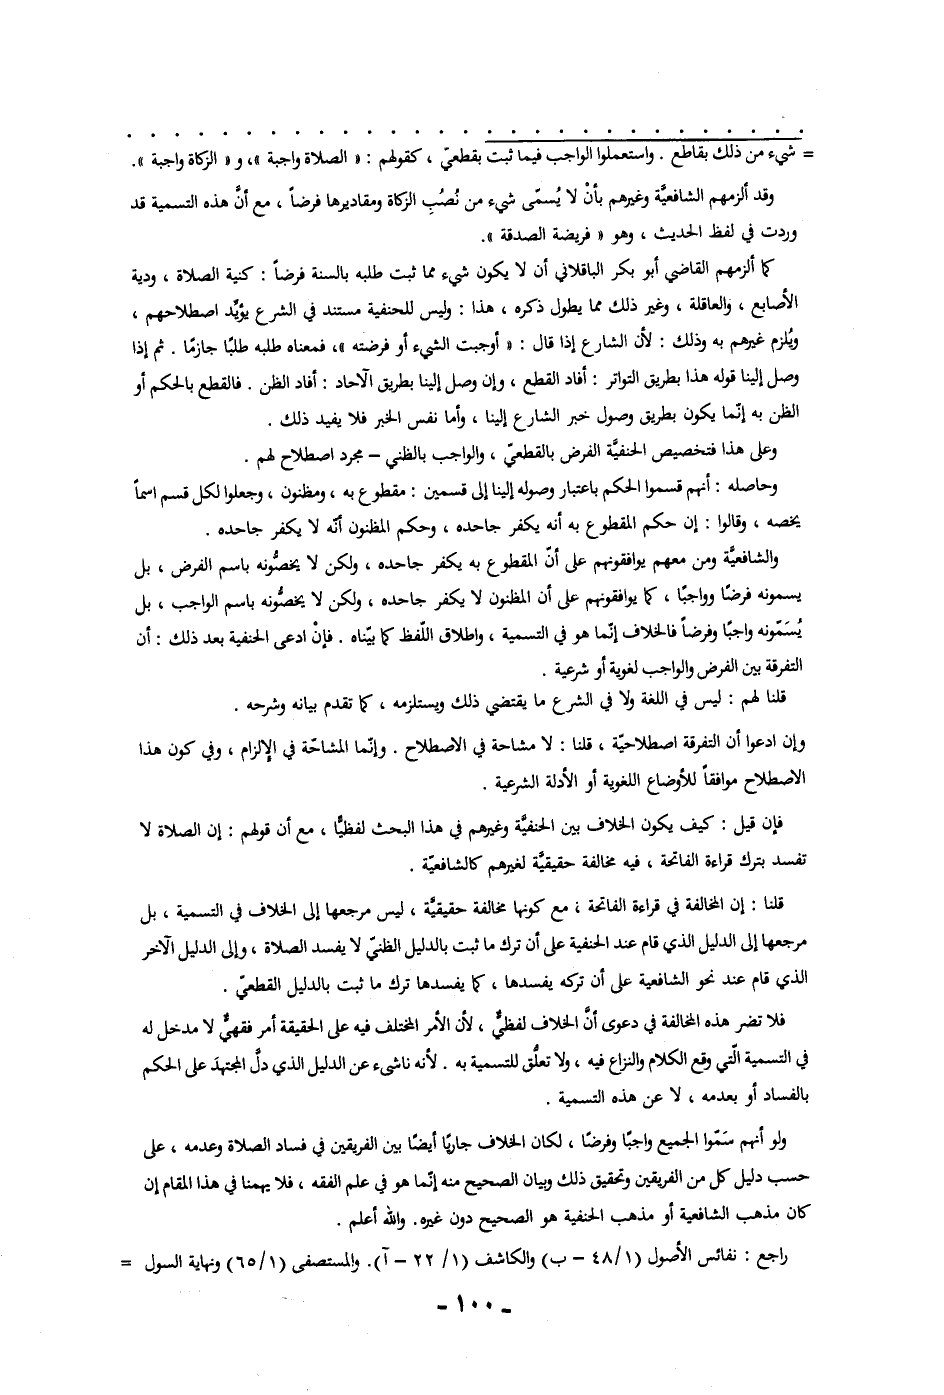 = شيء من ذلك بقاطع . واستعملوا الواجب فيما ثبت بقطعيّ ، كقولهم : « الصلاة واجبة »، و « الزكاة واجبة ».
وقد ألزمهم الشافعيَّة وغيرهم بأنْ لا يُسمّى شيء من نُصُبِ الزكاة ومقاديرها فرضاً ، مع أنَّ هذه التسمية قد
وردت في لفظ الحديث ، وهو « فريضة الصدقة ».
كما ألزمهم القاضي أبو بكر الباقلاني أن لا يكون شيء مما ثبت طلبه بالسنة فرضاً : كنية الصلاة ، ودية
الأصابع ، والعاقلة ، وغير ذلك مما يطول ذكره ، هذا : وليس للحنفية مستند في الشرع يؤيِّد اصطلاحهم ،
ويُلزم غيرهم به وذلك : لأن الشارع إذا قال : « أوجبت الشيء أو فرضته »، فمعناه طلبه طلبًا جازمًا . ثم إذا
وصل إلينا قوله هذا بطريق التواتر : أفاد القطع ، وإن وصل إلينا بطريق الآحاد : أفاد الظن . فالقطع بالحكم أو
الظن به إنّما يكون بطريق وصول خبر الشارع إلينا ، وأما نفس الخبر فلا يفيد ذلك .
وعلى هذا فتخصيص الحنفيَّة الفرض بالقطعيّ ، والواجب بالظني – مجرد اصطلاح لهم .
وحاصله : أنهم قسموا الحكم باعتبار وصوله إلينا إلى قسمين : مقطوع به ، ومظنون ، وجعلوا لكل قسم اسماً
يخصه ، وقالوا : إن حكم المقطوع به أنه يكفر جاحده ، وحكم المظنون أنّه لا يكفر جاحده .
والشافعيَّة ومن معهم يوافقونهم على أنّ المقطوع به يكفر جاحده ، ولكن لا يخصُّونه باسم الفرض ، بل
يسمونه فرضًا وواجبًا ، كما يوافقونهم على أن المظنون لا يكفر جاحده ، ولكن لا يخصُّونه باسم الواجب ، بل
يُسَمّونه واجبًا وفرضاً فالخلاف إنّما هو في التسمية ، واطلاق اللّفظ كما بيّناه . فإنْ ادعى الحنفية بعد ذلك : أن
التفرقة بين الفرض والواجب لغوية أو شرعية .
قلنا لهم : ليس في اللغة ولا في الشرع ما يقتضي ذلك ويستلزمه ، كما تقدم بيانه وشرحه .
وإن ادعوا أن التفرقة اصطلاحيّة ، قلنا : لا مشاحة في الاصطلاح . وإنّما المشاحّة في الإلزام ، وفي كون هذا
الاصطلاح موافقاً للأوضاع اللغوية أو الأدلة الشرعية .
فإن قيل : كيف يكون الخلاف بين الحنفيَّة وغيرهم في هذا البحث لفظيًّا ، مع أن قولهم : إن الصلاة لا
تفسد بترك قراءة الفاتحة ، فيه مخالفة حقيقيَّة لغيرهم كالشافعيّة .
قلنا : إن المخالفة في قراءة الفاتحة ؛ مع كونها مخالفة حقيقيَّة ، ليس مرجعها إلى الخلاف في التسمية ، بل
مرجعها إلى الدليل الذي قام عند الحنفية على أن ترك ما ثبت بالدليل الظنيّ لا يفسد الصلاة ، وإلى الدليل الآخر
الذي قام عند نحو الشافعية على أن تركه يفسدها ، كما يفسدها ترك ما ثبت بالدليل القطعيّ .
فلا تضر هذه المخالفة في دعوى أنَّ الخلاف لفظيٌّ ، لأن الأمر المختلف فيه على الحقيقة أمر فقهيٌّ لا مدخل له
في التسمية الّتي وقع الكلام والنزاع فيه ، ولا تعلُّق للتسمية به . لأنه ناشىء عن الدليل الذي دلَّ المجتهدَ على الحكم
بالفساد أو بعدمه ، لا عن هذه التسمية .
ولو أنهم سَمّوا الجميع واجبًا وفرضًا ، لكان الخلاف جاريًا أيضًا بين الفريقين في فساد الصلاة وعدمه ، على
حسب دليل كل من الفريقين وتحقيق ذلك وبيان الصحيح منه إنّما هو في علم الفقه ، فلا يهمنا في هذا المقام إن
كان مذهب الشافعية أو مذهب الحنفية هو الصحيح دون غيره. والله أعلم .
راجع : نفائس الأصول (٤٨/١ – ب) والكاشف (١/ ٢٢ – آ). والمستصفى (٦٥/١) ونهاية السول =
- ١٠٠ -